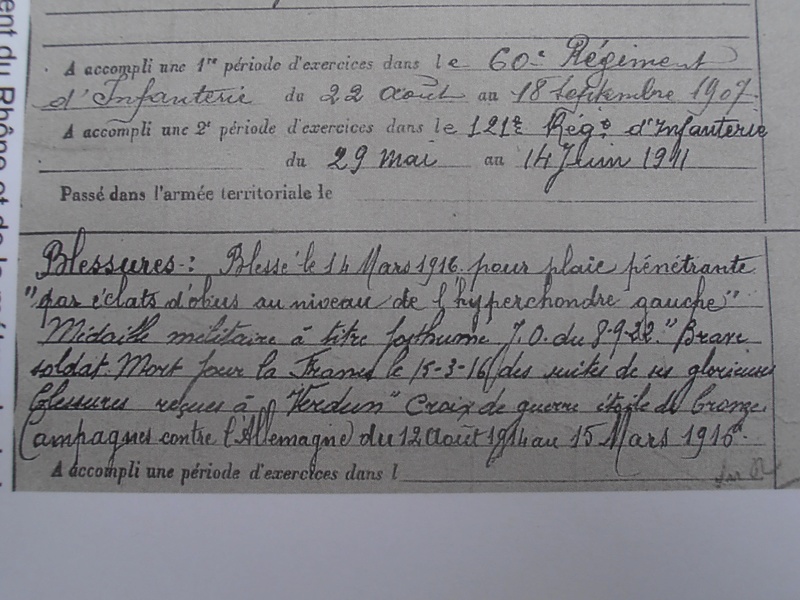 A accompli une 1re période d'exercices dans le 60e Régiment
d'Infanterie du 22 août au 18 septembre 1907.
A accompli une 2e période d'exercices dans le 121e Régt d'Infanterie
du 29 mai au 14 Juin 1911
Passé dans l'armée territoriale le
Blessures-: Blessé le 14 Mars 1916. pour plaie pénétrante
"par éclats d'obus au niveau de l'hyperchondre gauche"
Médaille militaire à titre posthume J.O. du 8-9-22. "Brave
soldat. Mort pour la France le 15-3-16 des suites de ses glorieuses
blessures reçues à "Verdun" Croix de guerre étoile de bronze.
Campagnes contre l'Allemagne) du 12 août 1914 au 15 Mars 1916.
A accompli une période d'exercices dans l
ent du Rhône et de la mét